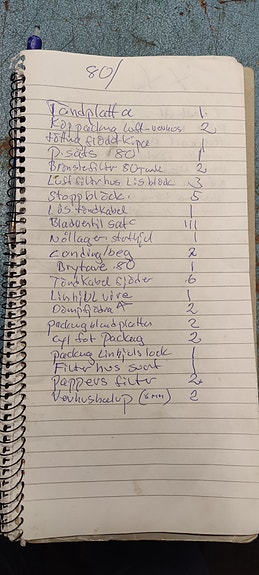 80/
Tändplatta 1
Koppackning luft-vevhus 2
Tättna fjäderkåpa 1
P.sats 80 1
Bränslefilter 80 tank 2
Luftfilterhus Lisblock 3
Stoppblock 5
Lös tändkabel 1
Bladventil sats 111
Nållager startkjul
Condingbeg 2
Brytare 80 1
Tändkabel fjäder 6
Linhjul vire 1
Dämpfjädra A 2
packng mandplatta 2
cyl fot packng 2
packng Linhjuls lock 1
Filter hus svart 1
Pappers filter 2
Vevhushalvp (6mm) 2